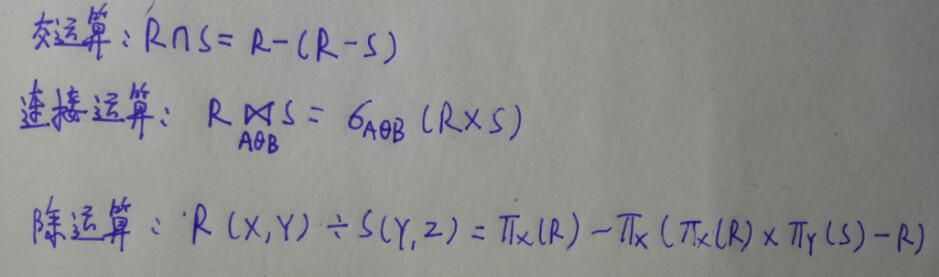 交运算：R∩S = R-(R-S)
连接运算：R ⋈ S = σAθB (R×S)
AθB
除运算：R(X,Y) ÷ S(Y,Z) = πx(R) - πx(πx(R) × πY(S) - R)